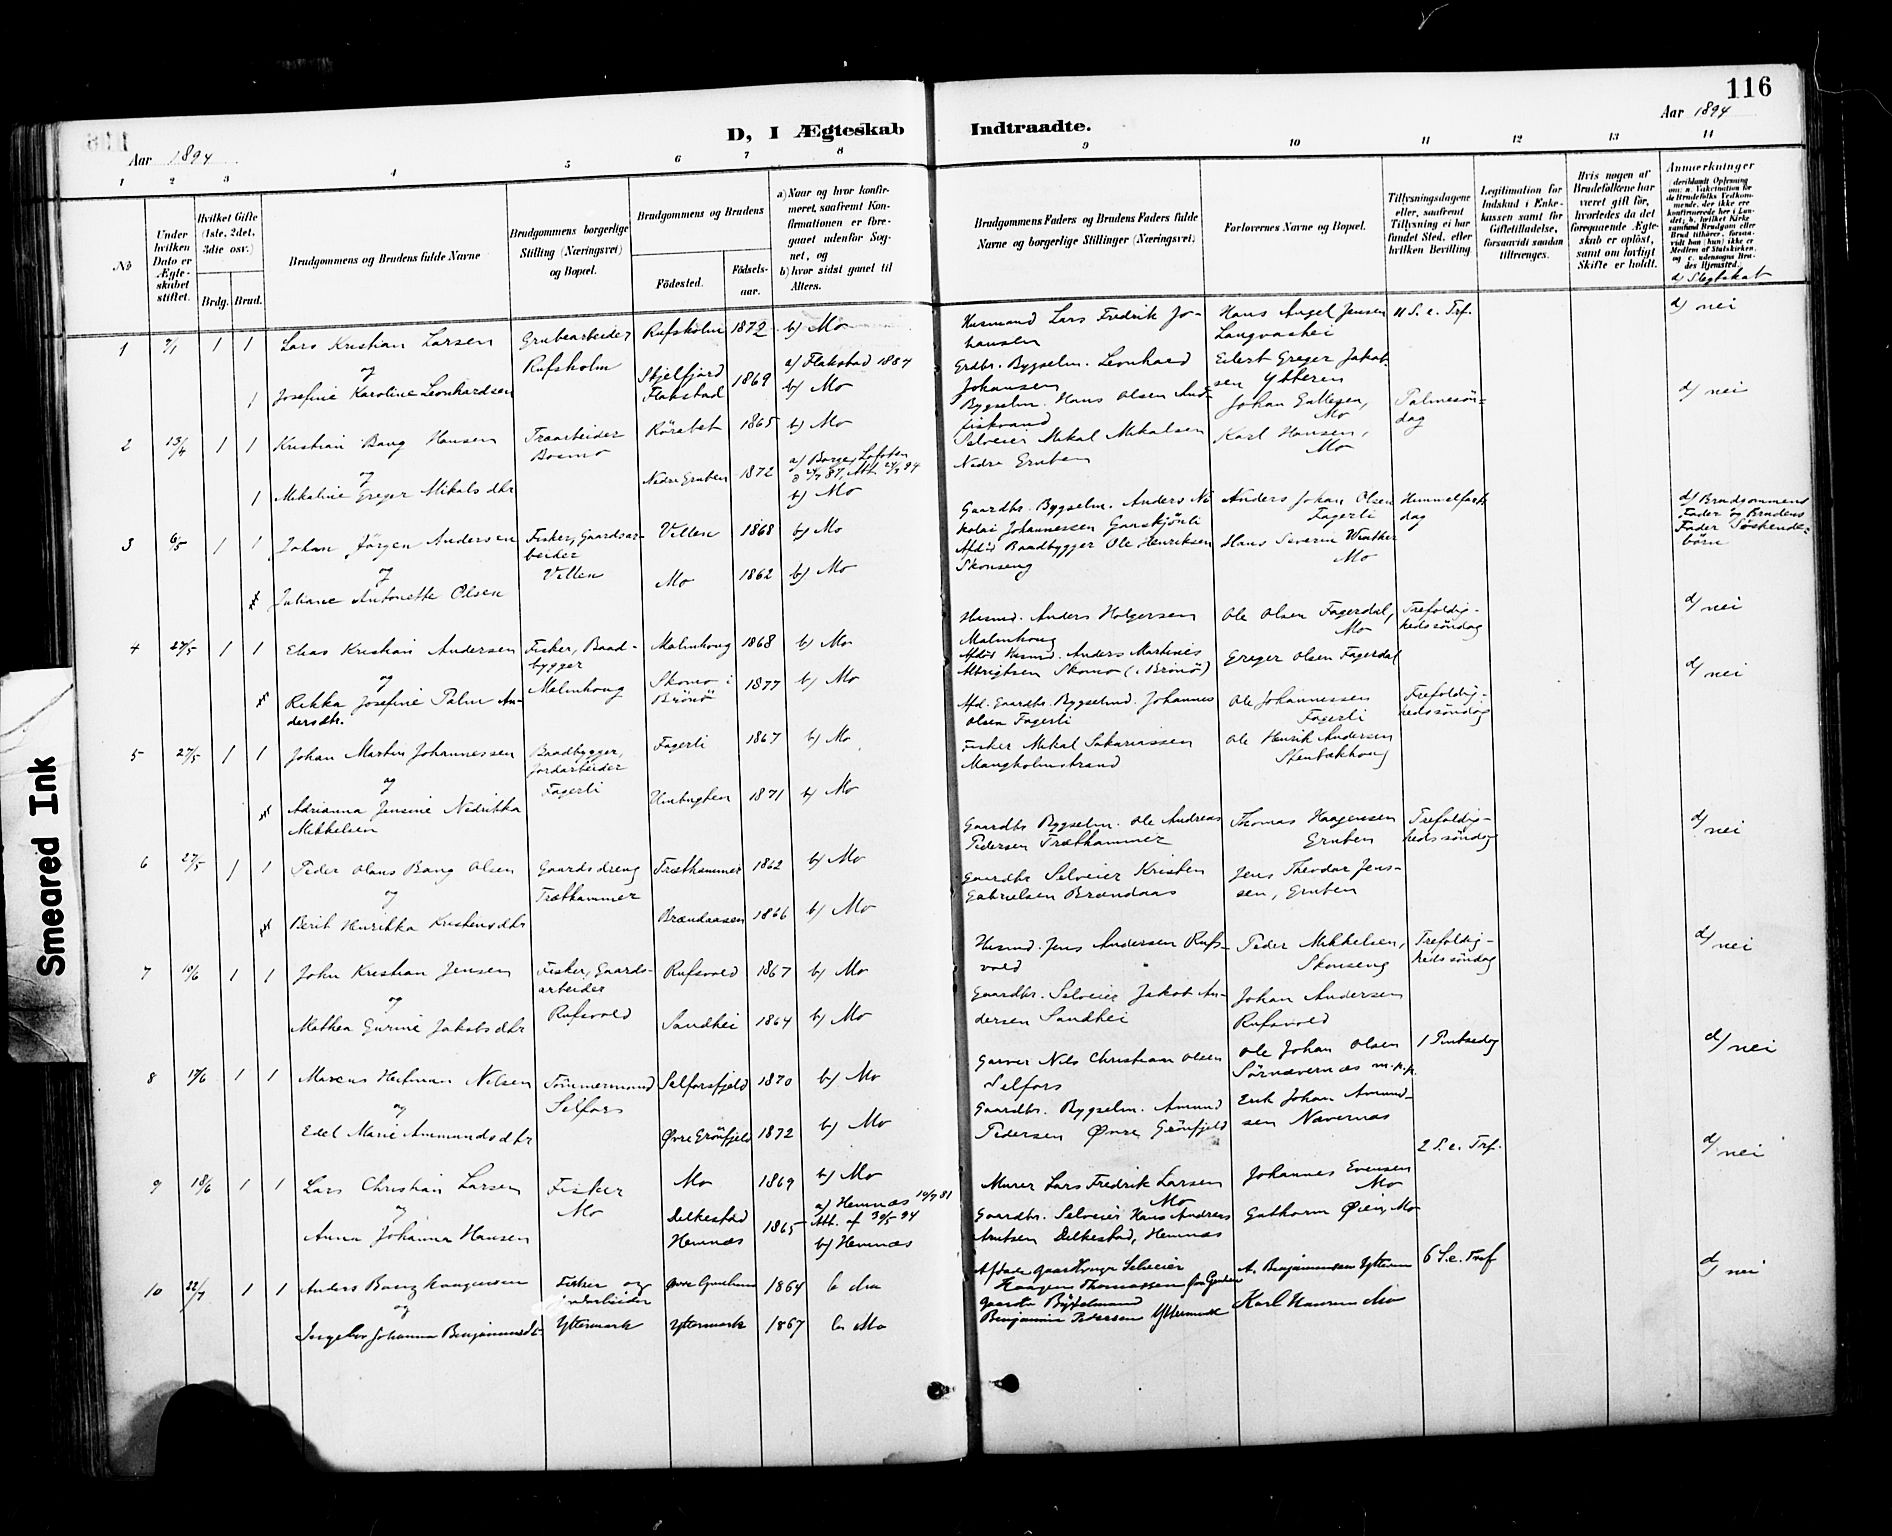 116
D, I Ægteskab Indtraadte.
Aar 1894
Aar 1894
1 2 3 4 5 6 7 8 9 10 11 12 13 14
No
Under hvilken Dato er Ægteskabet stiftet.
Hvilket Gifte (1ste, 2det, 3die osv.)
Brdg. Brud.
Brudgommens og Brudens fulde Navne
Brudgommens borgerlige Stilling (Næringsvei) og Bopæl.
Brudgommens og Brudens
Fødested.
Fødselsaar.
a) Naar og hvor konfirmeret, saafremt Konfirmationen er foregaaet udenfor Sognet, og
b) hvor sidst gaaet til Alters.
Brudgommens Faders og Brudens Faders fulde Navne og borgerlige Stillinger (Næringsvei)
Forlovernes Navne og Bopæl.
Tillysningsdagene eller, saafremt Tillysning ei har fundet Sted, efter hvilken Bevilling
Legitimation for Indskud i Enkekassen samt for Giftetilladelse, forsaavidt saadan tiltrænges.
Hvis nogen af Brudefolkene har været gift før, hvorledes da det foregaaende Ægteskab er opløst, samt om lovligt Skifte er holdt.
Anmærkninger
d) Slegtskab
1 7/1 1 1 Lars Kristian Larsen Grubearbeider Rufsholm 1872 b) Mo
Husmand Lars Fredrik Johansen Hans Angel Jensen Langvashei 11 S. e. Trf. d) nei
og Rufsholm
1 Josefine Karoline Leonhardsen Skjelfjord Flakstad 1869 a) Flakstad 1884 b) Mo
Grdbr. Bygselm. Leonhard Johansen Eilert Greger Jakobsen Ytteren
2 13/4 1 1 Kristian Bang Hansen Traarbeider Bosmo 1865 b) Mo
Bygselm. Hans Olsen Johan Mo Palmesöndag d) nei
og
1 Mikaline Greger Mikalsdtr Nedre Gruben 1872 b) Mo
Selveier Mikal Mikalsen Nedre Gruben Karl Hansen, Mo
3 6/5 1 1 Johan Jörgen Andersen Fisker, Gaardsarbeider Villen 1868 b) Mo
Gaardbr. Bygselm. Anders Nikolai Johannessen Anders Johan Olsen Fagerli Himmelfartsdag d) Brudgommens Fader og Brudens Fader Søskendebörn
og Villen
Juliane Antonette Olsen Mo 1862 b) Mo
Afdöd Baadbygger Ole Henriksen Skonseng Hans Severin Mo
4 27/5 1 1 Elias Kristian Andersen Fisker, Baadbygger Malmhoug 1868 b) Mo
Husmd. Anders Holgersen Malmhoug Ole Olsen Fagerdal, Mo Trefoldighedssöndag d) nei
og Malmhoug
Rikka Josefine Palm Andersdtr. Skomo i Brönö 1877 b) Mo
Afdöd Husmd. Anders Martines Albrigtsen Skomo (i Brönö) Greger Olsen Fagerdal
5 27/5 1 1 Johan Martin Johannessen Baadbygger, Jordarbeider Fagerli 1867 b) Mo
Afd. Gaardbr. Bygselmd. Johannes Olsen Fagerli Ole Johannessen Fagerli Trefoldighedssöndag d) nei
og Fagerli
Adrianna Jensine Nedrikka Mikkelsen 1871 b) Mo
Fisker Mikal Sakariassen Mangholmstrand Ole Henrik Andersen Stenbækhoug
6 27/5 1 1 Peder Olaus Bang Olsen Gaardsdreng Træthammer 1862 b) Mo
Gaardbr. Bygselm. Ole Andreas Pedersen Træthammer Thomas Haagensen Gruben Trefoldighedssöndag d) nei
og Træthammer
Berit Henrikka Kristensdtr Brændaasen 1866 b) Mo
Gaardbr. Selveier Kristen Gabrielsen Brændaas Jens Theodor Jenssen, Gruben
7 10/6 1 1 John Kristian Jensen Fisker, Gaardsarbeider Rufsvold 1867 b) Mo
Husmd. Jens Andersen Rufsvold Peder Mikkelsen, Skonseng Trefoldighedssöndag d) nei
og Rufsvold
Mathea Gurine Jakobsdtr Sandhei 1864 b) Mo
Gaardbr. Selveier Jakob Andersen Sandhei Johan Andersen Rufsvold
8 17/6 1 1 Marcus Hofman Nilsen Tömmermand Selforsfjeld 1870 b) Mo
Garver Nils Christian Olsen Selfors Ole Johan Olsen Sörnævernæs m.p.p. 1 Pintsedag d) nei
og Selfors
Edel Marie Ammundsdtr Øvre Grönfjeld 1872 b) Mo
Gaardbr. Bygselm. Amund Pedersen Øvre Grönfjeld Erik Johan Amundsen Nævernæs
9 18/6 1 1 Lars Christian Larsen Fisker Mo 1869 b) Mo
Murer Lars Fredrik Larsen Mo Johannes Evensen Mo 2 S. e. Trf. d) nei
og Mo
Anna Johanna Hansen Dilkestad Hemnæs 1865 a) Hemnæs 10/7 81 Att. af 30/5 94 b) Hemnæs
Gaardbr. Selveier Hans Andreas Arntsen Dilkestad, Hemnæs Guthorm Øien Mo
10 22/7 1 1 Anders Bang Haagensen Fisker og Jordarbeider Øvre Gruben 1864 b Mo
Afdøde Selveier Haagen Thomassen Øvre Gruben A. Benjaminsen Ytteren 6 S. e. Tref d) nei
og
Ingebor Johanna Benjaminsdtr Yttermark Yttermark 1867 b Mo
Gaardbr Bygselmand Benjamin Pedersen Yttermark Karl Hansen Mo
Smeared Ink